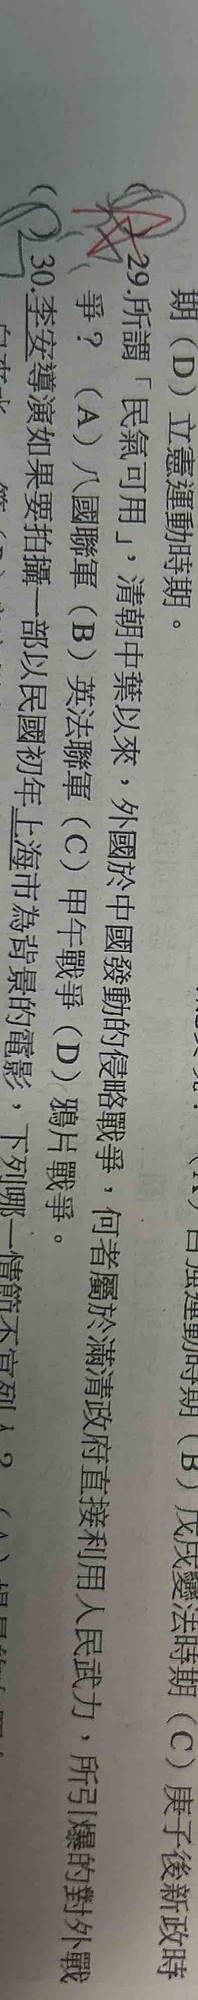 自強運動時期（B）戊戌變法時期（C）庚子後新政時
期（D）立憲運動時期。
29.所謂「民氣可用」，清朝中葉以來，外國於中國發動的侵略戰爭，何者屬於滿清政府直接利用人民武力，所引爆的對外戰
爭？（A）八國聯軍（B）英法聯軍（C）甲午戰爭（D）鴉片戰爭。
30.李安導演如果要拍攝一部以民國初年上海市為背景的電影，下列哪一情節不宜列入？（A）